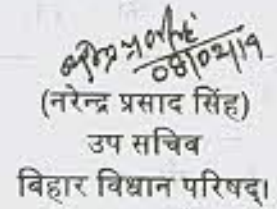 08/02/19
(नरेन्द्र प्रसाद सिंह)
उप सचिव
बिहार विधान परिषद्।